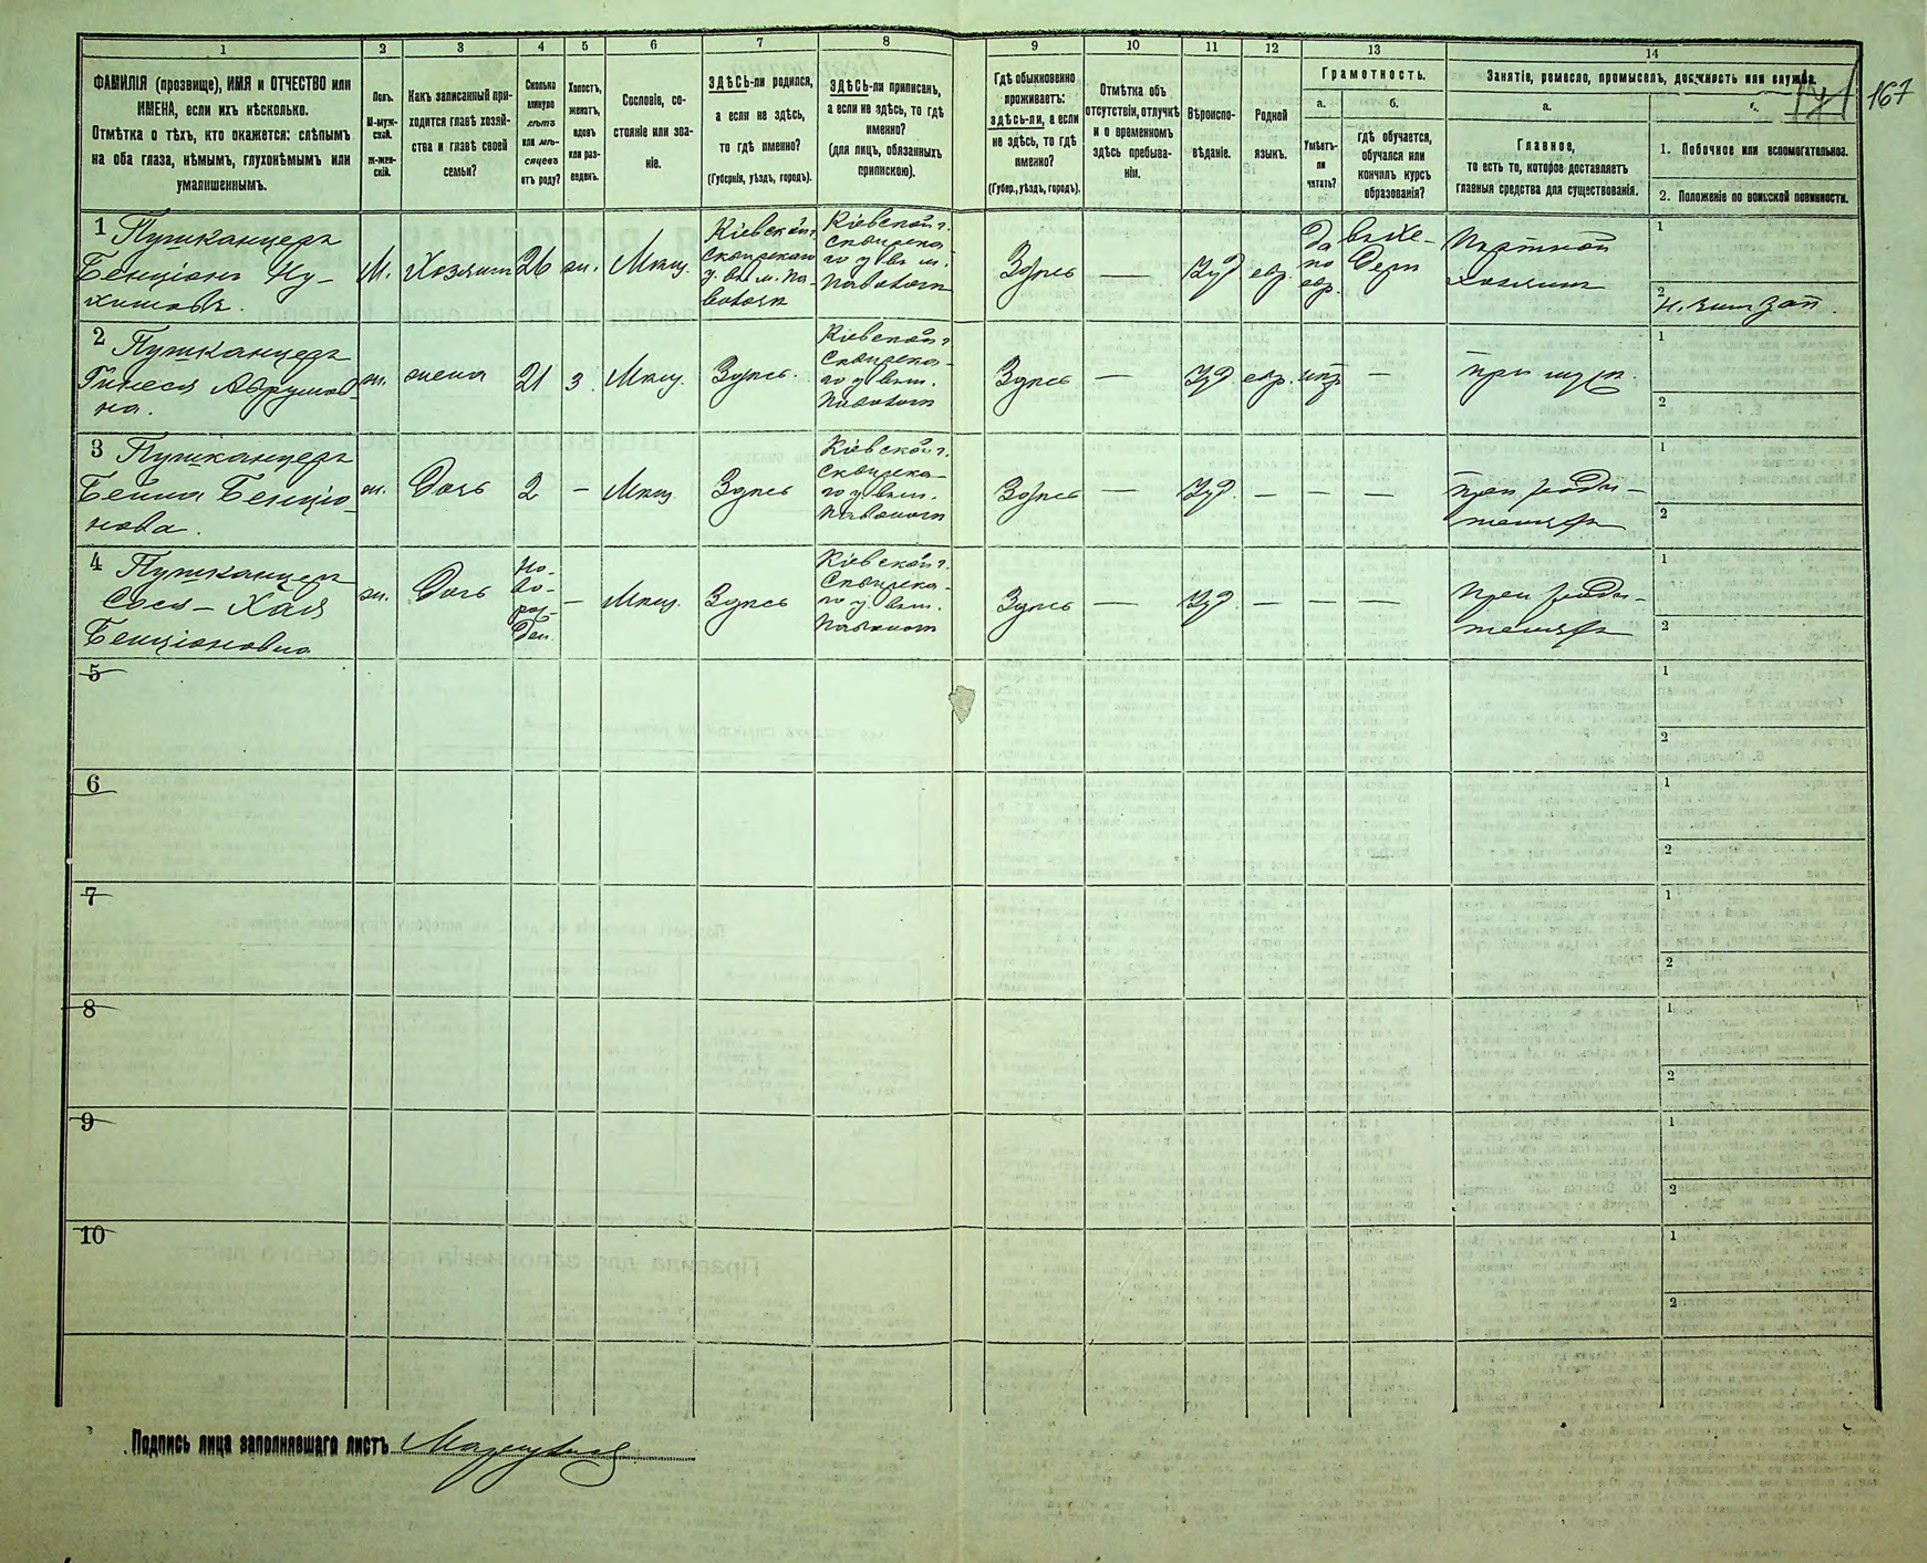 1 2 3 4 5 6 7 8 9 10 11 12 13 14
ФАМИЛІЯ (прозвище), ИМЯ и ОТЧЕСТВО или
ИМЕНА, если ихъ нѣсколько.
Отмѣтка о тѣхъ, кто окажется: слѣпымъ
на оба глаза, нѣмымъ, глухонѣмымъ или
умалишеннымъ.
Полъ.
М-муж-
ской.
Ж-жен-
скій.
Какъ записанный при-
ходится главѣ хозяй-
ства и главѣ своей
семьи?
Сколько
минуло
лѣтъ
или мѣ-
сяцевъ
отъ роду?
Холостъ,
женатъ,
вдовъ
или раз-
веденъ.
Сословіе, со-
стояніе или зва-
ніе.
ЗДѢСЬ-ли родился,
а если не здѣсь,
то гдѣ именно?
(Губернія, уѣздъ, городъ).
ЗДѢСЬ-ли приписанъ,
а если не здѣсь, то гдѣ
именно?
(для лицъ, обязанныхъ
припискою).
Гдѣ обыкновенно
проживаетъ:
здѣсь-ли, а если
не здѣсь, то гдѣ
именно?
(Губер., уѣздъ, городъ).
Отмѣтка объ
отсутствіи, отлучкѣ
и о временномъ
здѣсь пребыва-
ніи.
Вѣроиспо-
вѣданіе.
Родной
языкъ.
Грамотность.
а.
Умѣетъ-
ли
читать?
б.
гдѣ обучается,
обучался или
кончилъ курсъ
образованія?
Занятіе, ремесло, промыселъ, должность или служба.
а.
Главное,
то есть то, которое доставляетъ
главныя средства для существованія.
1. Побочное или вспомогательное.
2. Положеніе по воинской повинности.
167
1 Пушканцеръ
Бенціонъ Ну-
химовъ.
М.
Хозяинъ
26
ж.
Мѣщ.
Кіевской г.
Сквирскаго
у. въ м. Па-
волочи
Кіевской г.
Сквирска-
го у. въ м.
Паволочи
Здѣсь
—
Іуд
евр.
да
по
евр.
въ Хе-
дерѣ
Портной
хозяинъ
1
2
2 Пушканцеръ
Гинеся Аврумов-
на.
ж.
жена
21
з.
Мѣщ.
Здѣсь.
Кіевской г.
Сквирска-
го у. въ м.
Паволочи
Здѣсь
—
Іуд
евр.
нѣтъ
—
при муж.
1
2
3 Пушканцеръ
Бейла Бенціо-
нова.
ж.
Дочь
2
—
Мѣщ
Здѣсь
Кіевской г.
Сквирска-
го у. въ м.
Паволочи
Здѣсь
—
Іуд.
—
—
—
при роди-
теляхъ
1
2
4 Пушканцеръ
Сося-Хая
Бенціоновна
ж.
Дочь
Но-
во-
рож-
ден.
—
Мѣщ.
Здѣсь
Кіевской г.
Сквирска-
го у. въ м.
Паволочи
Здѣсь
—
Іуд.
—
—
—
При роди-
теляхъ
1
2
5
1
2
6
1
2
7
1
2
8
1
2
9
1
2
10
1
2
Подпись лица заполнявшаго листъ